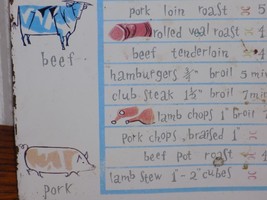 pork loin roast × 5
rolled veal roast × 4
beef tenderloin × 4
beef
hamburgers ¾" broil 5 min
club steak 1½" broil 7min
lamb chops 1" broil
pork chops, braised 1"
beef pot roast × 4
pork
lamb stew 1"-2" cubes ×